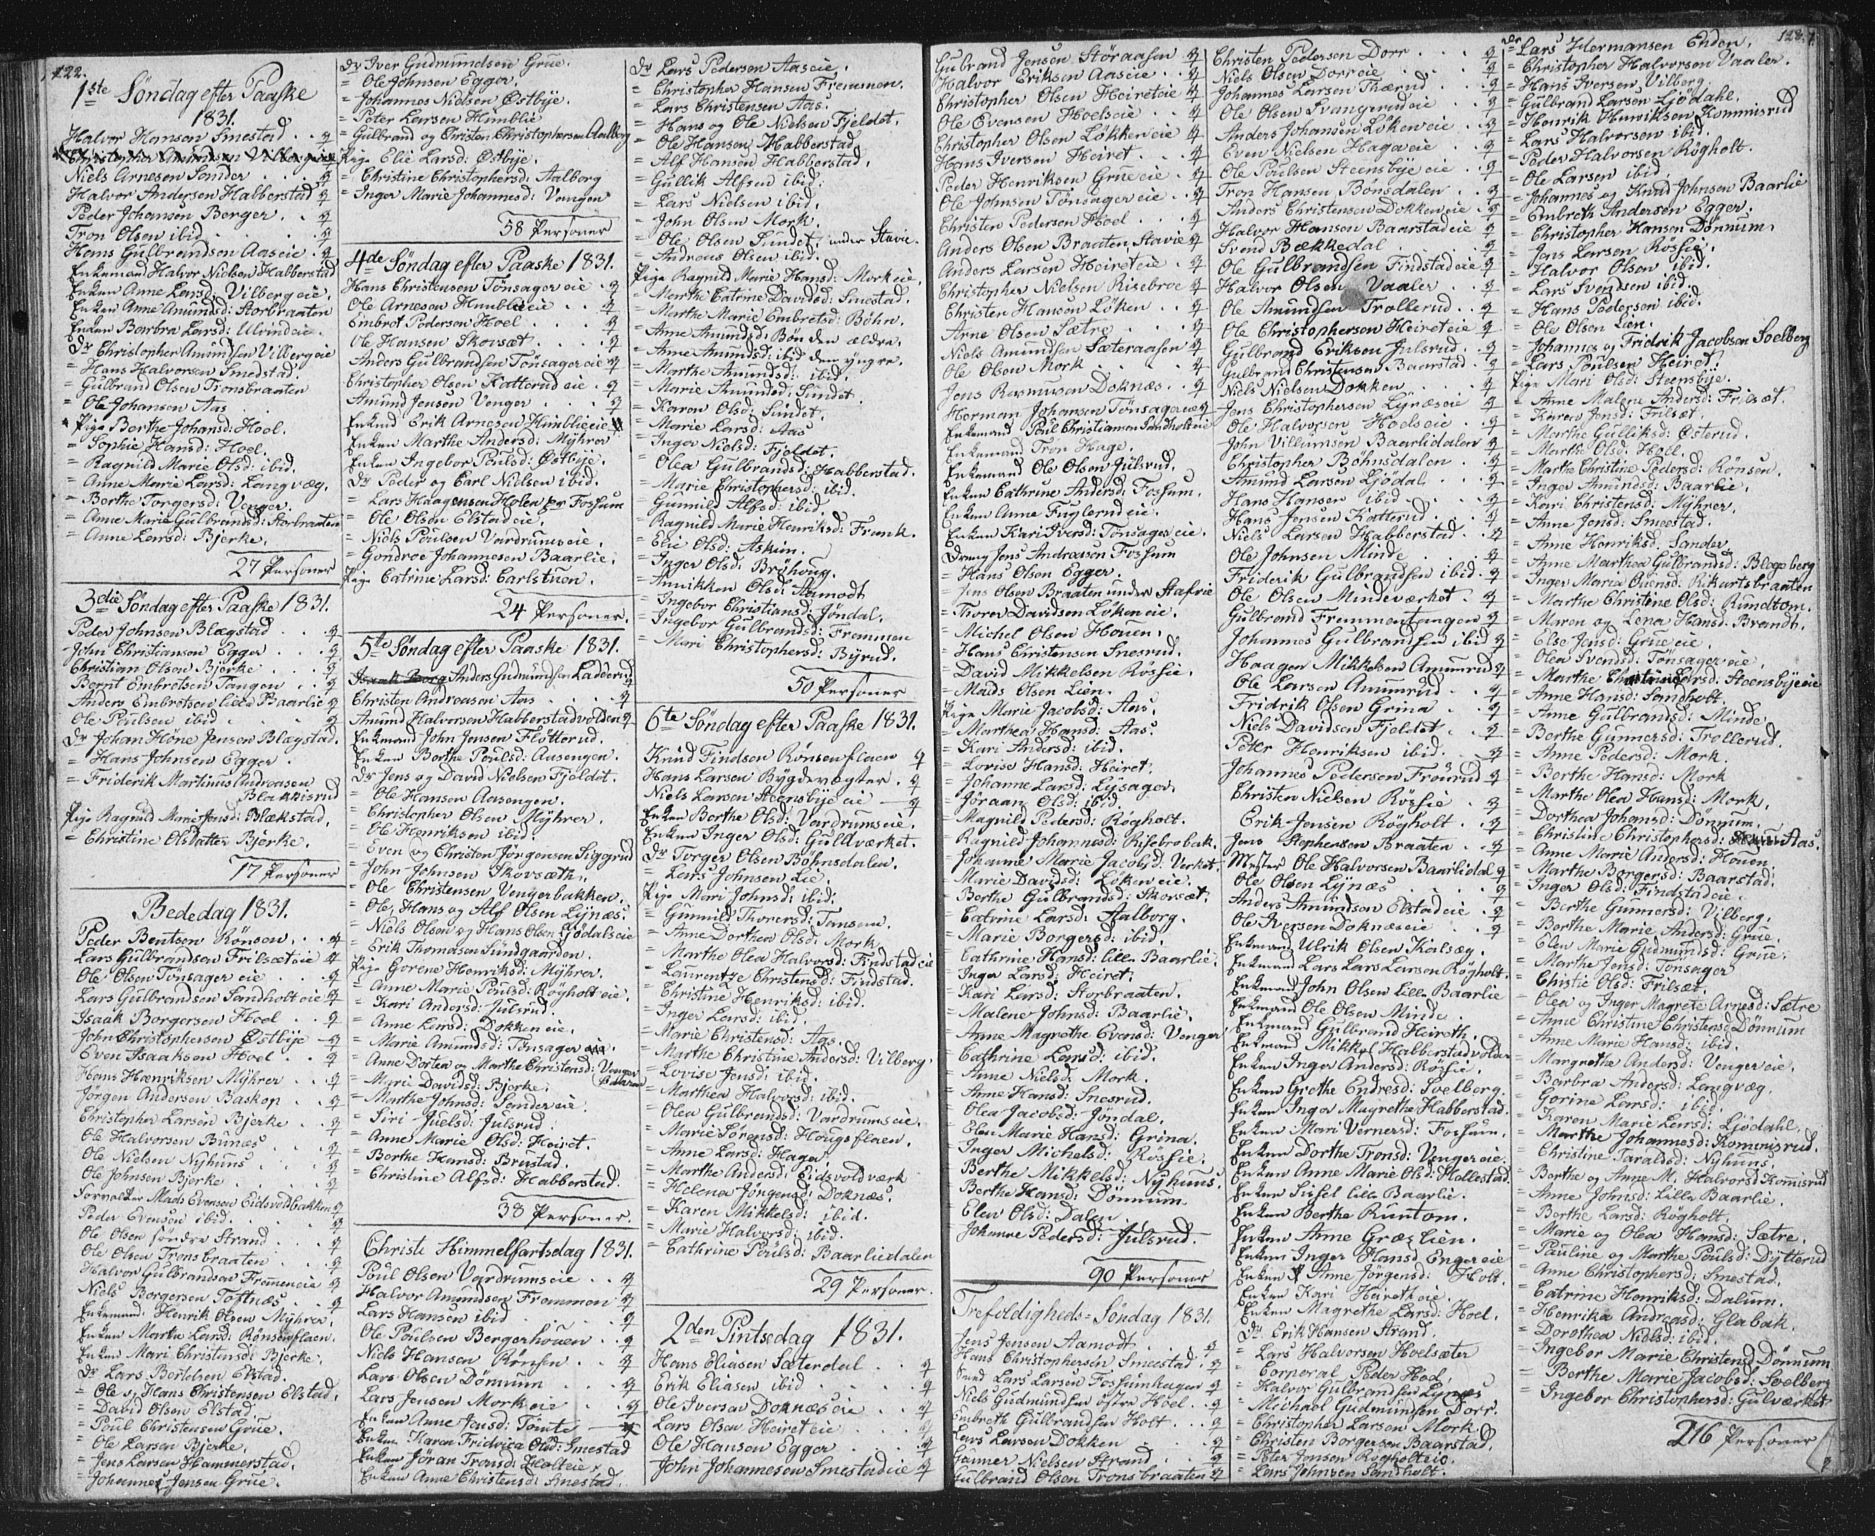 122.
1ste Søndag efter Paaske
1831.
Halvor Hansen Smestad . . q
Niels Arnesen Sander . . q
Halvor Andersen Habberstad q
Peder Johansen Berger . . q
Tron Olsen ibid . . . q
Hans Gulbrandsen Aaseie . q
Enkemand Halvor Nielsen Habberstad
Enken Anne Larsd: Vilbergeie.
Enken Anne Amunds: Storbraaten
Enken Barbra Larsd: Ulvindeie.
Dr Christopher Amundsen Vilbergeie
= Hans Halvorsen Smestad.
= Gulbrand Olsen Tronsbraaten
= Ole Johansen Aas
Pige Berthe Johansd: Hoel.
= Sophie Hansd: Hoel.
= Ragnild Marie Olsd: ibid.
= Anne Marie Larsd: Langvæg.
= Berthe Torgersd: Venger.
= Anne Marie Gulbrandsd: Storbraaten
= Anne Larsd: Bjerke.
27 Personer
3die Søndag efter Paaske 1831.
Peder Johnsen Blægstad . . q
John Christiansen Egger . . q
Christian Olsen Bjerke . . q
Bernt Embretsen Tangen . . q
Anders Embretsen lille Baarlie q
Ole Poulsen ibid . . . q
Dr Johan Høne Jensen Blægstad.
= Hans Johnsen Egger.
= Friderik Marthinus Andreasen
Blakkisrud
Pige Ragnild Marie Jensd: Blækstad.
= Christine Olsdatter Bjerke.
17 Personer
Bededag 1831.
Peder Bentsen Rönsen . . q
Lars Gulbrandsen Frilsæteie q
Ole Olsen Tönsager eie . . q
Lars Gulbrandsen Sandholt eie q
Isaak Borgersen Hoel . . q
John Christophersen Østbye q
Even Isaaksen Hoel . . q
Hans Hænriksen Myhrer . . q
Jörgen Andersen Baskop . . q
Christopher Larsen Bjerke . q
Ole Halvorsen Bunæs . . q
Ole Nielsen Nyhuus . . q
Ole Johnsen Bjerke . . q
Fornalker Mads Evensen Eidsvoldbakken q
Peder Evensen ibid. . . q
Ole Olsen søndre Strand . . q
Ole Olsen Tronsbraaten . . q
Halvor Gulbrandsen Fremeneie q
Niels Borgersen Toftnæs . . q
Enkemand Henrik Olsen Myhrer.
Enken Marthe Larsd: Rönsenflaen.
Enken Mari Christensd: Bjerke.
Dr Lars Bertelsen Elstad.
= Ole og Hans Christensen Elstad.
= David Olsen Elstad
= Poul Christensen Grue.
= Ole Larsen Bjerke.
= Jens Larsen Hammerstad.
= Johannes Jensen Grue.
Dr Iver Gudmundsen Grue.
= Ole Johnsen Egger.
= Johannes Nielsen Østbye.
= Peter Larsen Humblie
= Gulbrand og Christen Christophersen Aalborg
Pige Elie Larsd: Østbye.
= Christine Christophersd: Aalborg
= Inger Marie Johannesd: Vengen
58 Personer
4de Søndag efter Paaske 1831.
Hans Christensen Tönsager eie . q
Ole Arnesen Humblieeie . . q
Embret Pedersen Hoel . . . q
Ole Hansen Skovsæt . . . q
Anders Gulbrandsen Tönsagereie q
Christopher Olsen Katterud eie . q
Amund Jensen Venger . . . q
Enkmd Erik Arnesen Humblieeie
Enken Marthe Andersd: Myhrer
Enken Ingebor Poulsd: Østbye.
Dr Peder og Carl Nielsen ibid.
= Lars Haagensen Holen for Fossum
= Ole Olsen Elstadeie.
= Niels Poulsen Vardrumseie.
= Gondroe Johannesen Baarlie.
Pige Catrine Larsd: Carlstuen.
24 Personer.
5te Søndag efter Paaske 1831.
Anders Gudmundsen Ladderud
Christen Andreasen Aas . . . q
Amund Halvorsen Habberstadvolden q
Enkemand John Jensen Flotterud.
Enken Berthe Poulsd: Aasengen.
Dr Jens og David Nielsen Fjeldet.
= Ole Hansen Aasengen.
= Christopher Olsen Myhrer.
= Ole Henriksen ibid.
= Even og Christen Jörgensen Siggerud
= John Johnsen Skovsæth.
= Ole Christensen Vengerbakken.
= Ole, Hans og Alf Olsen Lynæs.
= Niels Olsen og Hans Olsen Ljödalseie
= Erik Thomasen Sundgaarden.
Pige Gorene Henriksd: Myhrer.
= Anne Marie Poulsd: Røgholt eie.
= Kari Andersd: Julsrud.
= Anne Larsd: Dokken eie.
= Marie Amundsd: Tönsager eie
= Anne Dortea og Marthe Christensd: Venger
Bakken
= Marie Davidsd: Bjerke.
= Marthe Johnsd: Sander eie.
= Siri Juelsd: Julsrud.
= Anne Marie Olsd: Heiret.
= Berthe Hansd: Brustad.
= Christine Alfsd: Habberstad.
38 Personer.
Christi Himmelfartsdag 1831.
Poul Olsen Vardrumseie . . q
Halvor Amundsen Fremmen q
Lars Hansen ibid . . . q
Ole Poulsen Bergerhouen . q
Niels Hansen Rönsen . . q
Lars Olsen Dönnum . . q
Lars Jensen Mork eie . . q
Enken Anne Jensd: Tömte
Enken Karen Fridrica Olsd: Smestad
Enken Jöran Tronsd: Holteie.
Enken Anne Christensd: Smestad.
Dr Lars Pedersen Aaseie.
= Christopher Hansen Fremmen.
= Lars Christensen Aas.
= Hans og Ole Nielsen Fjeldet.
= Ole Hansen Habberstad
= Alf Hansen Habberstad.
= Gullik Alfsen ibid:
= Lars Nielsen ibid.
= John Olsen Mork.
= Ole Olsen Sundet, under Stavie.
= Andreas Olsen ibid.
Pige Ragnild Marie Hansd: Mork eie.
= Marthe Catrine Davidsd: Smestad.
= Marthe Marie Embretsd: Böhn.
= Anne Amundsd: Bön den ældre.
= Anne Amundsd: ibid den yngre.
= Marthe Amundsd: ibid.
= Marie Amundsd: Sundet.
= Karen Olsd: Sundet.
= Marie Larsd: Aas
= Inger Nielsd: Fjeldet.
= Olea Gulbrandsd: Habberstad.
= Marie Christophersd: ibid.
= Gunnild Alfsd: ibid.
= Ragnild Marie Henriksd: Frenk.
= Elie Olsd: Askim.
= Inger Olsd: Bröhoug.
= Annikken Olsd: Aamodt
= Ingebor Christiansd: Jöndal.
= Ingebor Gulbrandsd: Fremmen
= Mari Christophersd: Byrud.
50 Personer
6te Søndag efter Paaske 1831.
Knud Findsen Rönsenflaen q
Hans Larsen Bygdevægter . q
Niels Larsen Steensbye eie q
Enken Berthe Olsd: Vardrumseie.
Enken Inger Olsd: Guldværket.
Dr Torger Olsen Böhnsdalen.
= Lars Johnsen Lie.
Pige Mari Johnsd: ibid.
= Gunnild Thoresd: Tansem.
= Anne Dorthea Olsd: Mork
= Marthe Olea Halvorsd: Findstad eie
= Laurentze Christensd: Findstad.
= Christine Henriksd: ibid.
= Inger Larsd: ibid.
= Marie Christensd: Aas.
= Marthe Christine Andersd: Vilberg.
= Lovise Jensd: ibid.
= Marthea Halvorsd: ibid.
= Olea Gulbrandsd: Vardrumseie.
= Marie Sörensd: Hougsflaen.
= Anne Larsd: Hager
= Marthe Andersd: Eidsvoldværk
= Helena Jörgensd: Doknæs.
= Karen Mikkelsd: ibid.
= Marie Halvorsd: ibid.
= Cathrine Poulsd: Baarlidaler
29 Personer.
2den Pintsedag 1831.
Hans Eliasen Sæterdal . . q
Erik Eliasen ibid . . . q
Ole Iversen Doknæs eie . . q
Lars Olsen Heireteie . . q
Ole Hansen Egger . . . q
John Johannesen Smestadeie q
Gubrand Jensen Störaasen q
Halvor Eriksen Aaseie . . q
Christopher Olsen Heireteie q
Ole Evensen Hoelseie . . q
Christopher Olsen Løkken eie q
Hans Iversen Heiret . . . q
Peder Henriksen Grueeie . q
Ole Johnsen Tönsagereie . q
Christen Pedersen Hoel . . q
Anders Olsen Braaten, Stavie q
Anders Larsen Heireteie . q
Christopher Nielsen Risebroe q
Christen Hansen Löken . . q
Arne Olsen Sætre . . . q
Niels Amundsen Sæteraasen q
Ole Olsen Mork . . . q
Jens Rasmusen Doknæs . . q
Herman Johansen Tönsagereie q
Enkemand Poul Christiansen Sandholteie
Enkemand Tron Hage.
Enkemand Ole Olsen Julsrud.
Enken Cathrine Andersd: Fossum.
Enken Anne Fuglerudeie.
Enken Kari Iversd: Tönsager eie.
Dreng Jens Andreasen Fossum
= Hans Olsen Egger.
= Jens Olsen Braaten under Stafvie
= Thoren Davidsen Løken eie.
= Michel Olsen Houen.
= Hans Christensen Snesrud.
= David Mikkelsen Røsfie.
= Mads Olsen Lien.
Pige Marie Jacobsd: Aas.
= Marthea Hansd: Aas.
= Kari Andersd: ibid.
= Lovise Hansd: Heiret.
= Johanne Larsd: Lysager.
= Jöraan Olsd: ibid.
= Magnild Pedersd: Røgholt.
= Ragnild Johannesd: Risebrobak.
= Johanne Marie Jacobsd: Verket.
= Marie Davidsd: Löken eie.
= Berthe Gulbrandsd: Skovsæt.
= Catrine Larsd: Aalborg.
= Marie Borgersd: ibid.
= Cathrine Hansd: lille Baarlie.
= Inger Larsd: Heiret.
= Kari Larsd: Storbraaten.
= Malene Johnsd: Baarlie.
= Anne Magrethe Evensd: Venger
= Cathrine Larsd: ibid.
= Anne Nielsd: Mork.
= Anne Hansd: Snesrud.
= Olea Jacobsd: Jöndal.
= Elen Marie Hansd: Grina.
= Inger Michelsd: Røsfie.
= Berthe Mikkelsd: Nyhuus.
= Berthe Hansd: Dönnum
= Elen Olsd: Dalen
= Johanne Pedersd: Julsrud.
90 Personer
Trefoldigheds-Søndag 1831.
Jens Jensen Aamodt . . q
Hans Christophersen Smestad . q
Lars Larsen Fossumhagen q
Niels Gudmundsen østre Hoel . q
Embreth Gulbrandsen Holt . . q
Lars Larsen Dokken . . q
Gunner Nielsen Strand . . q
Gulbrand Olsen Tronsbraaten q
Christen Pedersen Dorr . . . q
Niels Olsen Dorreie . . . q
Johannes Larsen Thærud . . q
Ole Olsen Svangerudeie . . q
Anders Johansen Løkeneie . . q
Even Nielsen Hageeie . . q
Ole Poulsen Steensbye eie . . q
Tron Hansen Bønsdalen . . q
Anders Christensen Dokken eie . q
Halvor Hansen Baarstad eie . q
Svend Bækkedal . . . q
Ole Gulbrandsen Findstadeie q
Halvor Olsen Vaaler . . q
Ole Amundsen Trollerud . . q
Ole Christophersen Heireteie . q
Gulbrand Eriksen Julsrud . . q
Gulbrand Christensen Baarstad . q
Niels Nielsen Dokken . . q
Jens Christophersen Lynæseie . q
Ole Halvorsen Hoelseie . . q
John Villumsen Baarlidalen q
Christopher Böhnsdalen . . q
Amund Larsen Ljödal . . q
Hans Hansen ibid . . q
Hans Jensen Katterud . . q
Niels Larsen Habberstad . . q
Ole Johnsen Minde . . . q
Friderik Gulbrandsen ibid . q
Ole Olsen Mindeværket . . q
Gulbrand Fremmentangen q
Johannes Gulbrandsen ibid q
Haagen Mikkelsen Amunrud q
Ole Larsen Amunrud . . q
Fridrik Olsen Grina . . q
Niels Davidsen Fjeldet . . q
Peter Henriksen ibid. . . q
Johannes Pedersen Frörud q
Christen Nielsen Røsfie . q
Erik Jensen Røgholt . . q
Jens Stephersen Braaten . q
Mester Ole Halvorsen Baarlidal q
Ole Olsen Lynæs . . . q
Anders Amundsen Elstadeie . q
Ole Iversen Doknæseie . . q
Enkemand Ulrik Olsen Kalsæg.
Enkemand Lars Larsen Røgholt.
Enkemand John Olsen Lille Baarlie
Enkemand Ole Olsen Minde.
Enkemand Gulbrand Heireth.
Enkemand Mikkel Habberstadvolden
Enken Inger Andersd: Røsfie.
Enken Grethe Endresd: Svelberg.
Enken Inger Magrethe Habberstad.
Enken Mari Vernersd: Fossum.
Enken Dorthe Tronsd: Vengereie.
Enken Anne Marie Olsd: Hallestad.
Enken Sissel Lille Baarlie.
Enken Berthe Runtom.
Enken Anne Græslien.
Enken Inger Hansd: Engereie
Enken Anne Jörgensd: Holt.
Enken Kari Heireth eie.
Enken Magrethe Larsd: Hoel.
Dr Erik Hansen Strand.
= Lars Halvorsen Hoelsæter
= Corporal Peder Hoel.
= Halvor Gulbrandsen Lynæs
= Michael Gudmundsen Dorr.
= Christopher Larsen Mork.
= Christen Borgersen Baarstad.
= Peter Jensen Røgholteie.
= Lars Johnsen Sandholt.
128.
Dr Lars Hermansen Enden.
= Christopher Halvorsen Vaaler.
= Hans Iversen Vilberg.
= Gulbrand Larsen Ljödahl.
= Henrik Henriksen Kommisrud
= Lars Halvorsen ibid.
= Peder Halvorsen Røgholt.
= Ole Larsen ibid.
= Johannes og Knud Johnsen Baarlie
= Embrek Andersen Egger.
= Christopher Hansen Dönnum.
= Jens Larsen Røsfie.
= Halvor Olsen ibid.
= Lars Svendsen ibid.
= Hans Pedersen ibid.
= Ole Olsen Lien.
= Johannes og Fridrik Jacobsen Svelberg
= Lars Poulsen Heiret.
Pige Mari Olsd: Steensbye.
= Anne Malene Andersd: Frilset.
= Karen Jensd: Frilsæt.
= Marthe Gulliksd: Österud.
= Marthe Olsd: Holl.
= Marthe Christine Pedersd: Rönsen.
= Inger Amundsd: Baarlie.
= Kari Christensd: Myhrer.
= Anne Jensd: Smestad.
= Anne Henriksd: Sander
= Anne Marthea Gulbrandsd: Blegeberg
= Inger Maria Osensd: Rikartsbraaten
= Marthe Christine Olsd: Rundtom.
= Maren og Lena Hansd: Brandt.
= Else Jensd: Grueeie.
= Olea Svendsd: Tönsager eie.
= Marthe Steensbyeeie
= Anne Hansd: Sandholt.
= Anne Gulbrandsd: Minde
= Berthe Gunnersd: Trollerud.
= Anne Pedersd: Mork.
= Berthe Hansd: Mork
= Marthe Olea Hansd: Mork.
= Dorthea Johansd: Dönnum.
= Christine Christophersd: Aas.
= Anne Marie Andersd: Houen
= Marthe Borgersd: Baarstad.
= Inger Olsd: Findstadeie.
= Berthe Gunnersd: Vilberg.
= Berthe Marie Andersd: Grue
= Elen Marie Gudmundsd: Grue.
= Marthe Jensd: Tönsager
= Christie Olsd: Frilsæt.
= Olea og Inger Magrete Arnesd: Sætre
= Anne Christine Christensd: Dönnum
= Anne Marie Hansd: ibid.
= Margrethe Andersd: Venger eie.
= Barbra Andersd: Langvæg.
= Gorine Larsd: ibid.
= Karen Marie Larsd: Ljödahl.
= Marthe Johannesd: Kommisrud.
= Christine Taraldsd: Nyhuus.
= Berthe og Anne M. Halvorsd: Komisrud
= Anne Johnsd: Lille Baarlie.
= Berthe Larsd: Røgholt.
= Marie og Olea Hansd: Sætre.
= Pauline og Marthe Poulsd: Dytterud
= Anne Christophersd: Smestad.
= Catrine Henriksd: Dalum.
= Henrika Andreasd: Glabak.
= Dorothea Nielsd: ibid.
= Ingebor Marie Christensd: Dönnum
= Berthe Marie Jacobsd: Svelberg
= Ingebor Christophersd: Gulværket
216 Personer